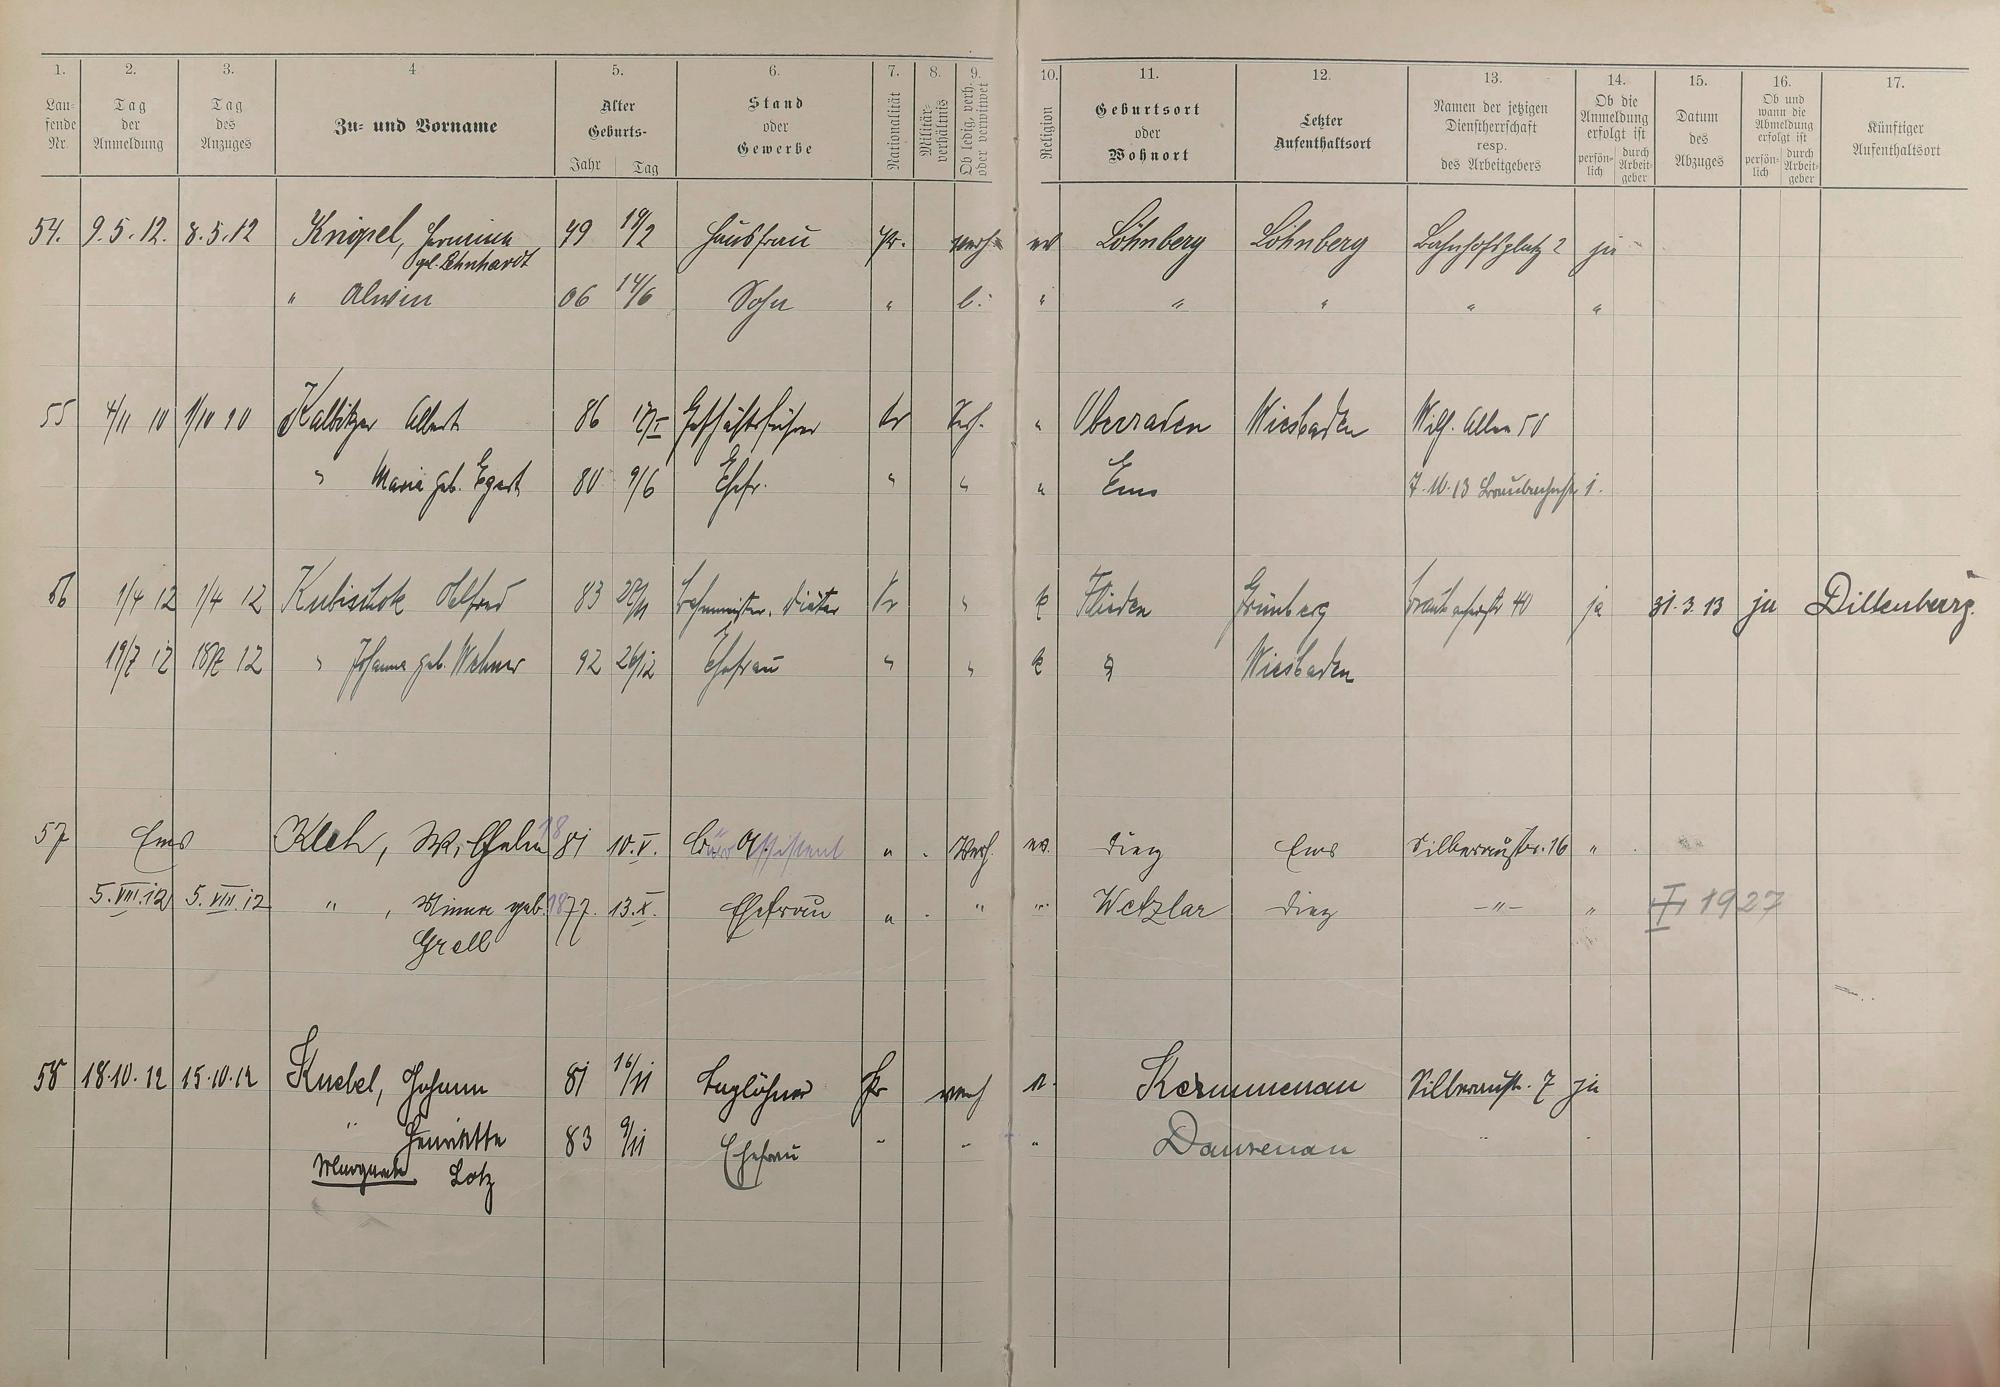 1. 2. 3. 4 5. 6. 7. 8. 9. 10. 11. 12. 13. 14. 15. 16. 17.
Lau-
fende
Nr.
Tag
der
Anmeldung
Tag
des
Anzuges
Zu- und Vorname
Alter
Geburts-
Jahr Tag
Stand
oder
Gewerbe
Nationalität
Militär-
verhältnis
Ob ledig, verh.
oder verwitwet
Religion
Geburtsort
oder
Wohnort
Letzter
Aufenthaltsort
Namen der jetzigen
Dienstherrschaft
resp.
des Arbeitgebers
Ob die
Anmeldung
erfolgt ist
persön-
lich
durch
Arbeit-
geber
Datum
des
Abzuges
Ob und
wann die
Abmeldung
erfolgt ist
persön-
lich
durch
Arbeit-
geber
Künftiger
Aufenthaltsort
54. 9.5.12. 8.5.12 Knipsel, Hermine 49 19/2 Hausfrau Pr. verh. ev Löhnberg Löhnberg Bahnhofsplatz 2 ja
Lehnhardt
" Alwin 06 14/6 Sohn " l. " " " " "
55 4/11 10 1/10 10 Kalbitzer Albert 86 Geschäftsführer Pr Verh. " Oberraden Wiesbaden Wilh. Allee 50
" Maria geb. Egert 80 9/6 Ehefr. " " " Ems 7.10.13 Braubacherstr 1.
56 1/4 12 1/4 12 Kubischok Alfred 83 Bahnmeister. Diätar Pr " k Flieden Grünberg Braubacherstr 40 ja 31.3.13 ja Dillenburg.
19/7 12 18/7 12 " Johanna geb. Wehner 92 26/12 Ehefrau " " k " Wiesbaden
57 Ems Kleh, Wilhelm 1881 10.V. Büro Assistent " . Verh. ev. Diez Ems Silberaustr. 16 "
5.VIII.12 5.VIII.12 " , Minna geb. 1877. 13.X. Ehefrau " . " " Wetzlar Diez -"- " I 1927
Grell
58 18.10.12 15.10.12 Knebel, Johann 81 16/11 Taglöhner Pr verh Kemmenau Silberaustr. 7 ja
" Henriette 83 9/11 Ehefrau " " " Dausenau " "
Lotz